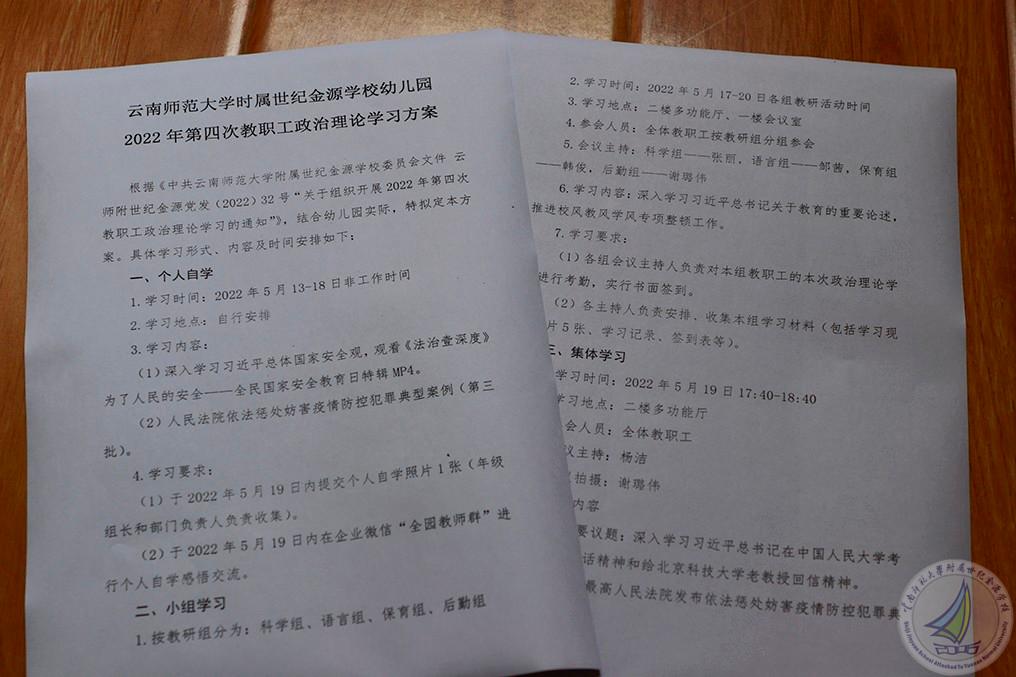 云南师范大学时属世纪金源学校幼儿园
2022 年第四次教职工政治理论学习方案
根据《中共云南师范大学附属世纪金源学校委员会文件 云
师附世纪金源党发（2022）32 号“关于组织开展 2022 年第四次
教职工政治理论学习的通知”》，结合幼儿园实际，特拟定本方
案。具体学习形式、内容及时间安排如下：
一、个人自学
1.学习时间：2022 年 5 月 13-18 日非工作时间
2.学习地点：自行安排
3.学习内容：
（1）深入学习习近平总体国家安全观，观看《法治壹深度》
为了人民的安全——全民国家安全教育日特辑 MP4。
（2）人民法院依法惩处妨害疫情防控犯罪典型案例（第三
批）。
4.学习要求：
（1）于 2022 年 5 月 19 日内提交个人自学照片 1 张（年级
组长和部门负责人负责收集）。
（2）于 2022 年 5 月 19 日内在企业微信“全园教师群”进
行个人自学感悟交流。
二、小组学习
1.按教研组分为：科学组、语言组、保育组、后勤组
2.学习时间：2022 年 5 月 17-20 日各组教研活动时间
3.学习地点：二楼多功能厅、一楼会议室
4.参会人员：全体教职工按教研组分组参会
5.会议主持：科学组——张丽，语言组——邹茜，保育组
——韩俊，后勤组——谢璐伟
6.学习内容：深入学习习近平总书记关于教育的重要论述，
推进校风教风学风专项整顿工作。
7.学习要求：
（1）各组会议主持人负责对本组教职工的本次政治理论学
进行考勤，实行书面签到。
（2）各主持人负责安排、收集本组学习材料（包括学习现
片 5 张、学习记录、签到表等）。
三、集体学习
学习时间：2022 年 5 月 19 日 17:40-18:40
学习地点：二楼多功能厅
会人员：全体教职工
议主持：杨洁
拍摄：谢璐伟
内容
要议题：深入学习习近平总书记在中国人民大学考
话精神和给北京科技大学老教授回信精神。
最高人民法院发布依法惩处妨害疫情防控犯罪典
云南师范大學附属世纪金源学校
Shiji Jinyuan School Attached To Yunnan Normal University